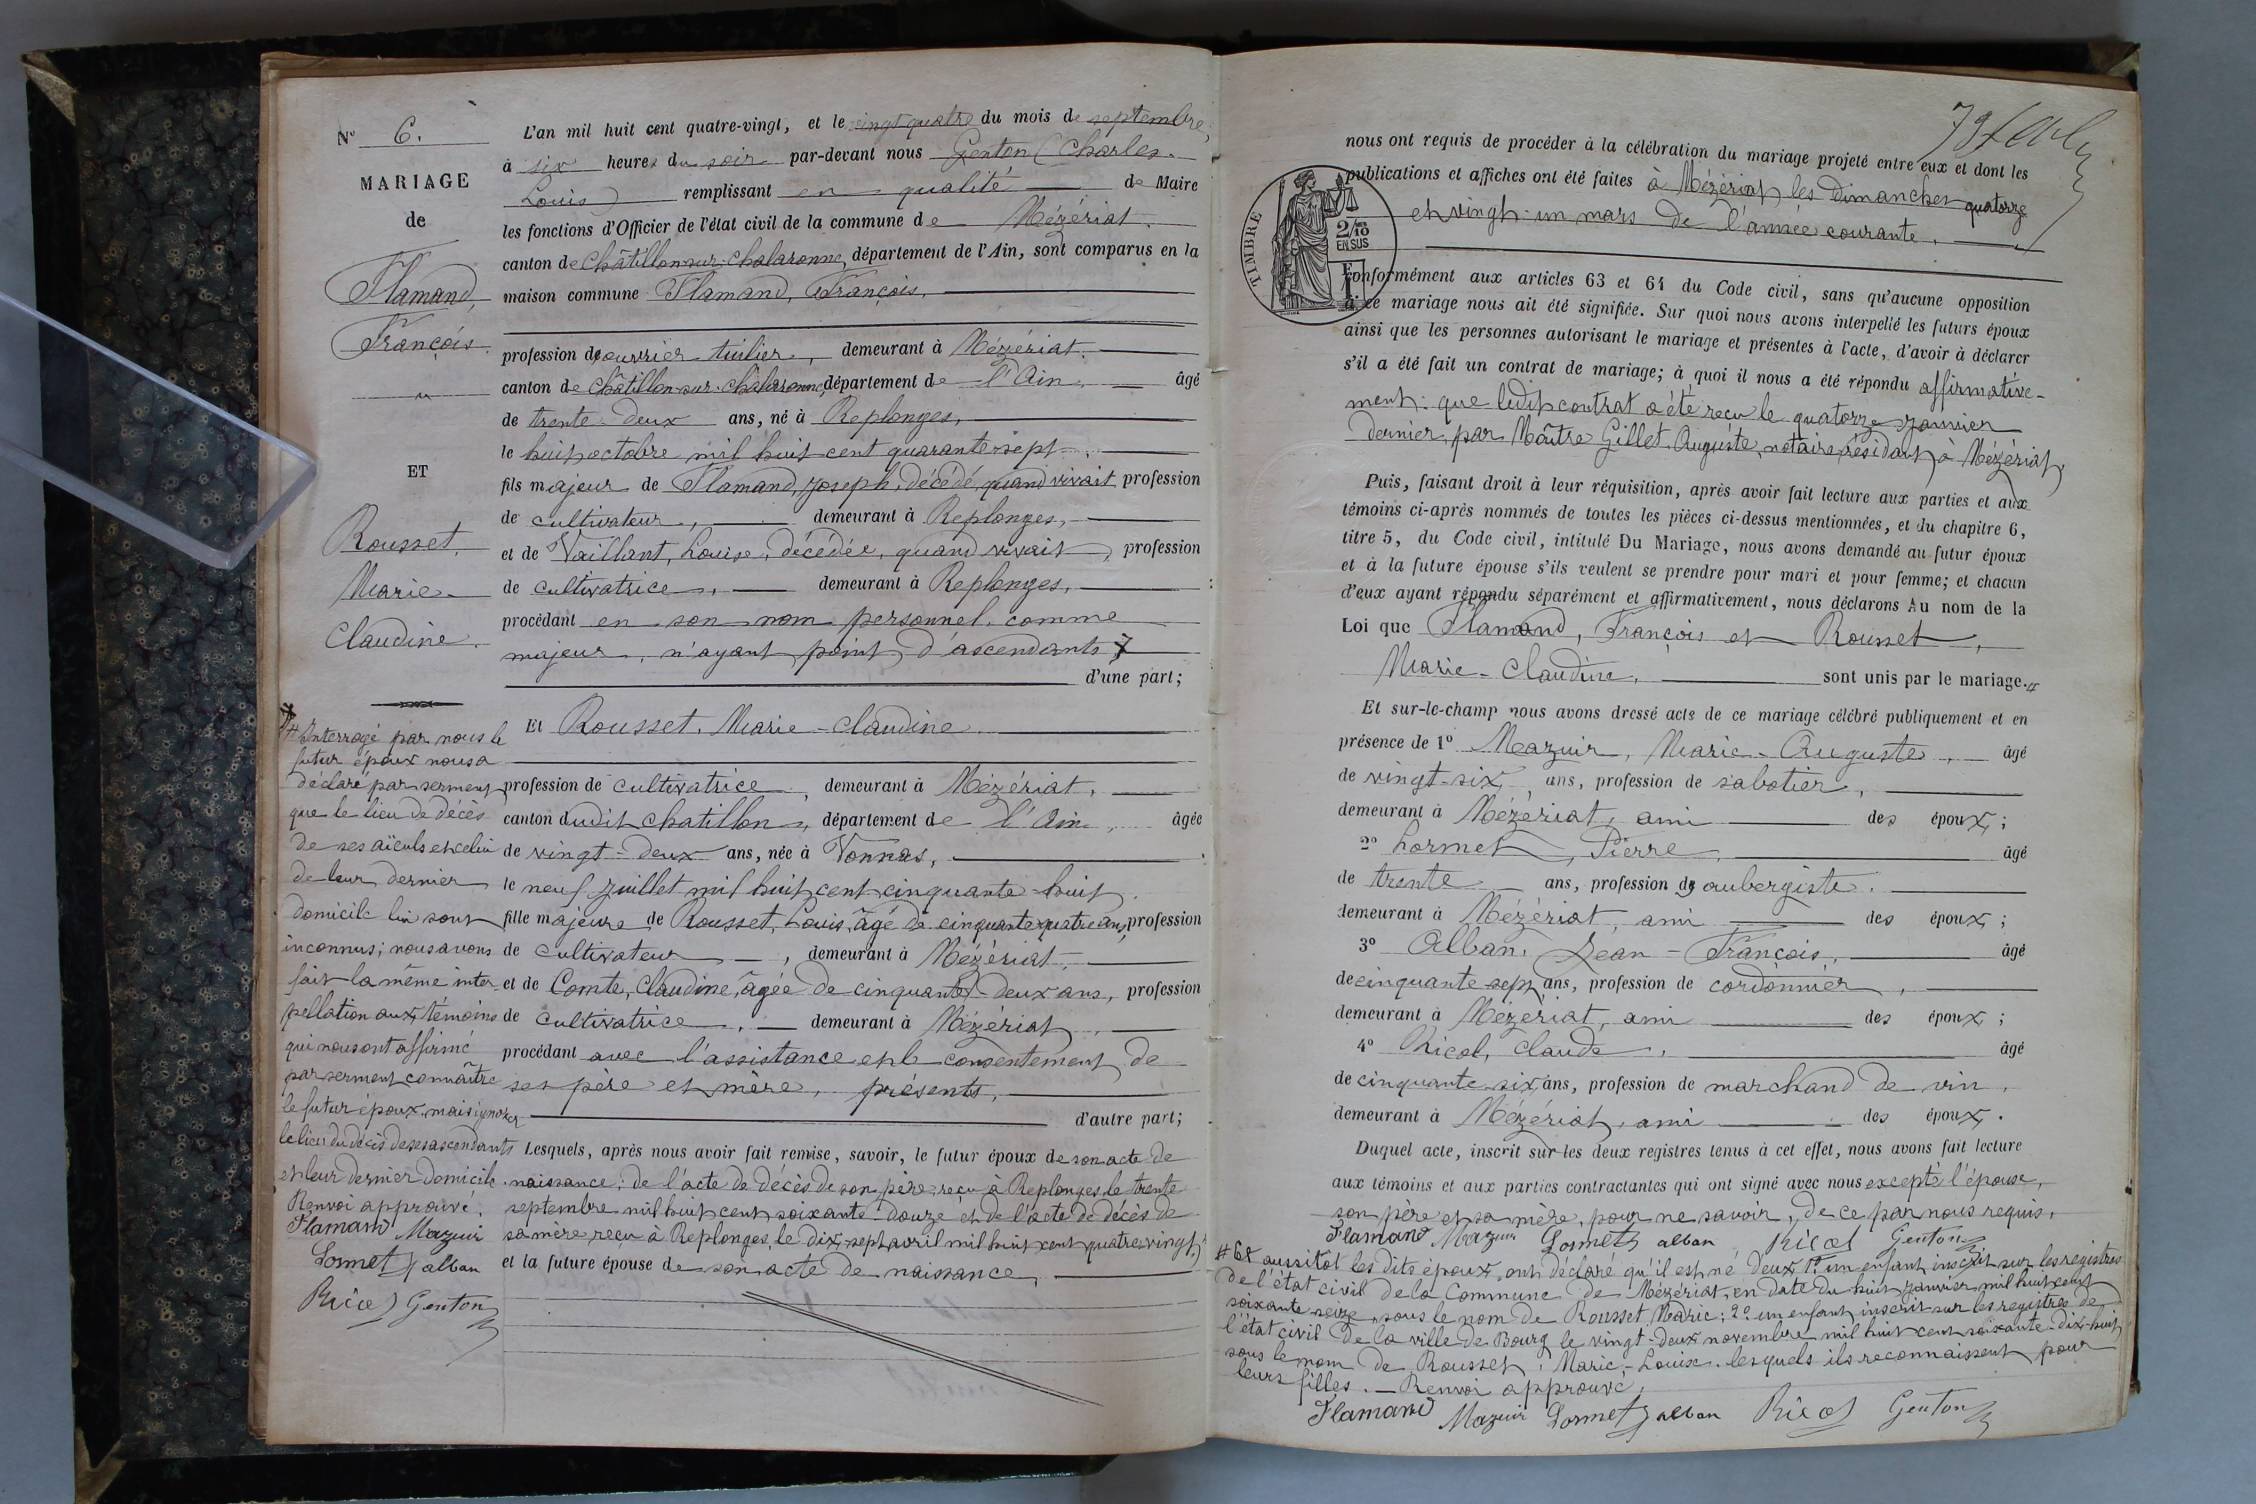 N° 6.
MARIAGE
de
Flamand,
François.
ET
Rousset,
Marie-
Claudine.
L'an mil huit cent quatre-vingt, et le vingt quatre du mois de septembre,
à six heures du soir par-devant nous Genton (Charles-
Louis) remplissant en qualité de Maire
les fonctions d'Officier de l'état civil de la commune de Mézériat.
canton de Châtillon-sur-Chalaronne, département de l'Ain, sont comparus en la
maison commune Flamand, François,
profession d'ouvrier tuilier, demeurant à Mézériat,
canton de Châtillon-sur-Chalaronne, département de l'Ain, âgé
de trente-deux ans, né à Replonges,
le huit octobre mil huit cent quarante-sept,
fils majeur de Flamand, Joseph, décédé, quand vivait profession
de cultivateur, demeurant à Replonges,
et de Vaillant, Louise, décédée, quand vivait, profession
de cultivatrice, demeurant à Replonges,
procédant en son nom personnel, comme
majeur, n'ayant point d'ascendants #
d'une part;
Et Rousset, Marie-Claudine
profession de cultivatrice, demeurant à Mézériat,
canton dudit Chatillon, département de l'Ain, âgée
de vingt-deux ans, née à Vonnas,
le neuf juillet mil huit cent cinquante-huit,
fille majeure de Rousset, Louis, âgé de cinquante quatre ans, profession
de cultivateur, demeurant à Mézériat,
et de Comte, Claudine, âgée de cinquante-deux ans, profession
de cultivatrice, demeurant à Mézériat,
procédant avec l'assistance et le consentement de
ses père et mère, présents,
d'autre part;
Lesquels, après nous avoir fait remise, savoir, le futur époux de son acte de
naissance; de l'acte de décès de son père, reçu à Replonges, le trente
septembre mil huit cent soixante-douze et de l'acte de décès de
sa mère, reçu à Replonges, le dix-sept avril mil huit cent quatre-vingt,
et la future épouse de son acte de naissance,
# Interrogé par nous le
futur époux nous a
déclaré par serment
que le lieu de décès
de ses aïeuls et celui
de leur dernier
domicile lui sont
inconnus; nous avons
fait la même inter-
pellation aux témoins
qui nous ont affirmé
par serment connaître
le futur époux, mais ignorer
le lieu du décès de ses ascendants
et leur dernier domicile.
Renvoi approuvé.
Flamand Mazuir
Lormet alban
Ricol Genton
nous ont requis de procéder à la célébration du mariage projeté entre eux et dont les
publications et affiches ont été faites à Mézériat les Dimanches quatorze
et vingt-un mars de l'année courante.
TIMBRE
2/10
EN SUS
Conformément aux articles 63 et 64 du Code civil, sans qu'aucune opposition
à ce mariage nous ait été signifiée. Sur quoi nous avons interpellé les futurs époux
ainsi que les personnes autorisant le mariage et présentes à l'acte, d'avoir à déclarer
s'il a été fait un contrat de mariage; à quoi il nous a été répondu affirmative-
ment: que ledit contrat a été reçu le quatorze janvier
dernier, par Maître Gillet, Auguste, notaire, résidant à Mézériat,
Puis, faisant droit à leur réquisition, après avoir fait lecture aux parties et aux
témoins ci-après nommés de toutes les pièces ci-dessus mentionnées, et du chapitre 6,
titre 5, du Code civil, intitulé Du Mariage, nous avons demandé au futur époux
et à la future épouse s'ils veulent se prendre pour mari et pour femme; et chacun
d'eux ayant répondu séparément et affirmativement, nous déclarons Au nom de la
Loi que Flamand, François et Rousset,
Marie-Claudine, sont unis par le mariage.#
Et sur-le-champ nous avons dressé acte de ce mariage célébré publiquement et en
présence de 1° Mazuir, Marie-Auguste, âgé
de vingt-six, ans, profession de sabotier,
demeurant à Mézériat, ami des époux;
2° Lormet, Pierre, âgé
de trente ans, profession d'aubergiste,
demeurant à Mézériat, ami des époux;
3° Alban, Jean-François, âgé
de cinquante-sept ans, profession de cordonnier,
demeurant à Mézériat, ami des époux;
4° Ricol, Claude, âgé
de cinquante-six ans, profession de marchand de vin,
demeurant à Mézériat, ami des époux.
Duquel acte, inscrit sur les deux registres tenus à cet effet, nous avons fait lecture
aux témoins et aux parties contractantes qui ont signé avec nous excepté l'épouse,
son père et sa mère, pour ne savoir, de ce par nous requis.
Flamand Mazuir Lormet alban Ricol Genton
# Et aussitôt les dits époux ont déclaré qu'il est né d'eux 1° un enfant inscrit sur les registres
de l'état civil de la commune de Mézériat, en date du huit janvier mil huit cent
soixante seize, sous le nom de Rousset, Marie; 2° un enfant inscrit sur les registres de
l'état civil de la ville de Bourg le vingt-deux novembre mil huit cent soixante-dix-huit
sous le nom de Rousset, Marie-Louise, lesquels ils reconnaissent pour
leurs filles. — Renvoi approuvé,
Flamand Mazuir Lormet alban Ricol Genton